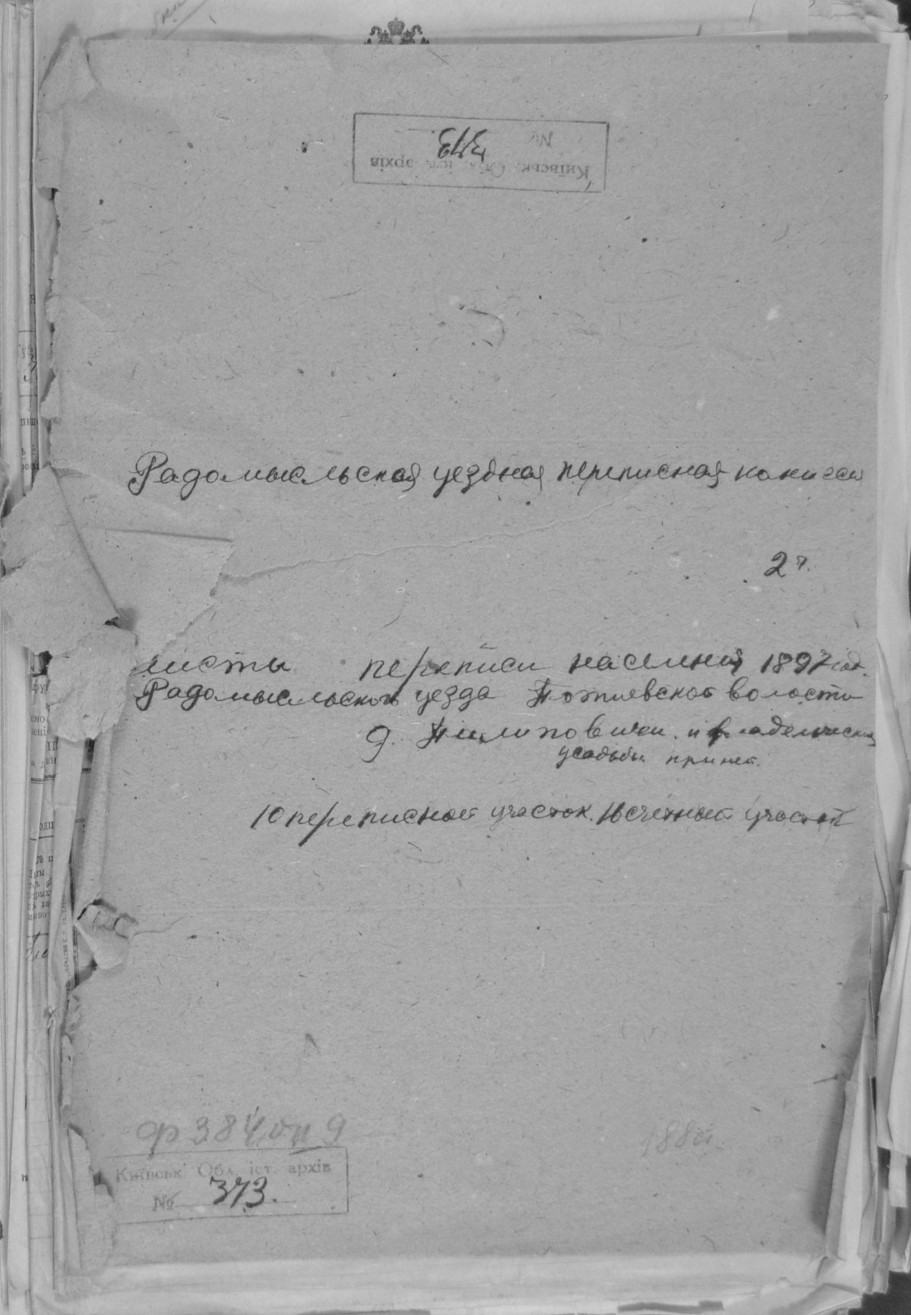 Київськ. Обл. іст. архів
№ 373
Радомысльская уездная переписная комисси
2 ч.
листы переписи населения 1897 год.
Радомысльского уезда Потиевской волости
д. Пилиповичи и владельческ
усадьбы
10 переписной участок. счетный участок
ф 384 оп 9
Київськ. Обл. іст. архів
№ 373.